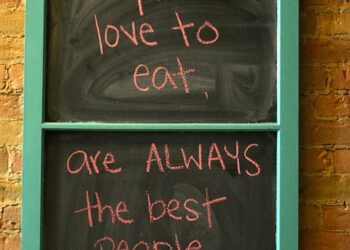 love to
eat,
are ALWAYS
the best
People